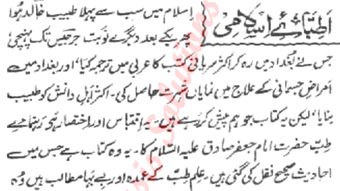 اطبائے اسلامی
اسلام میں سب سے پہلا طبیب خالد ہوا
پھر یکے بعد دیگرے نوبت جرجیس تک پہنچی
جس نے بغداد میں رہ کر اکثر سریانی کتب کا عربی میں ترجمہ کیا، اور بغداد میں سے
امراض جسمانی کے علاج میں نمایاں شہرت حاصل کی۔ اکثر اہل دانش کو طبیب
بنایا، لیکن یہ کتاب جو ہم پیش کر رہے ہیں۔ یہ اقتباس اور اختصار ہی رہنما ہے
طب حضرت امام جعفر صادق علیہ السلام کا۔ یہ وہ کتاب ہے جس میں سے
احادیث صحیح نقل کی گئی ہیں۔ علم طب کے عمدہ اور بے بہا مطالب ہیں وہ